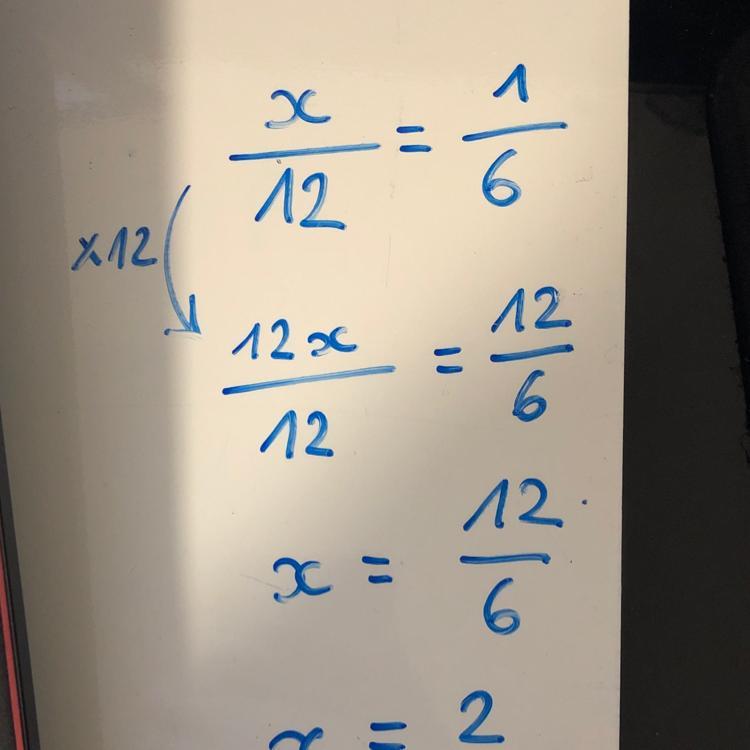 x/12 = 1/6
×12
12x/12 = 12/6
x = 12/6
x = 2